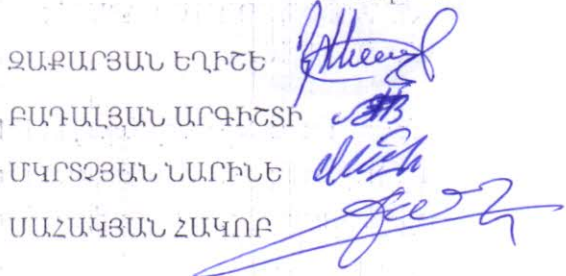 ԶԱՔԱՐՅԱՆ ԵՂԻՇԵ
ԲԱԴԱԼՅԱՆ ԱՐԳԻՇՏԻ
ՄԿՐՏՉՅԱՆ ՆԱՐԻՆԵ
ՍԱՀԱԿՅԱՆ ՀԱԿՈԲ